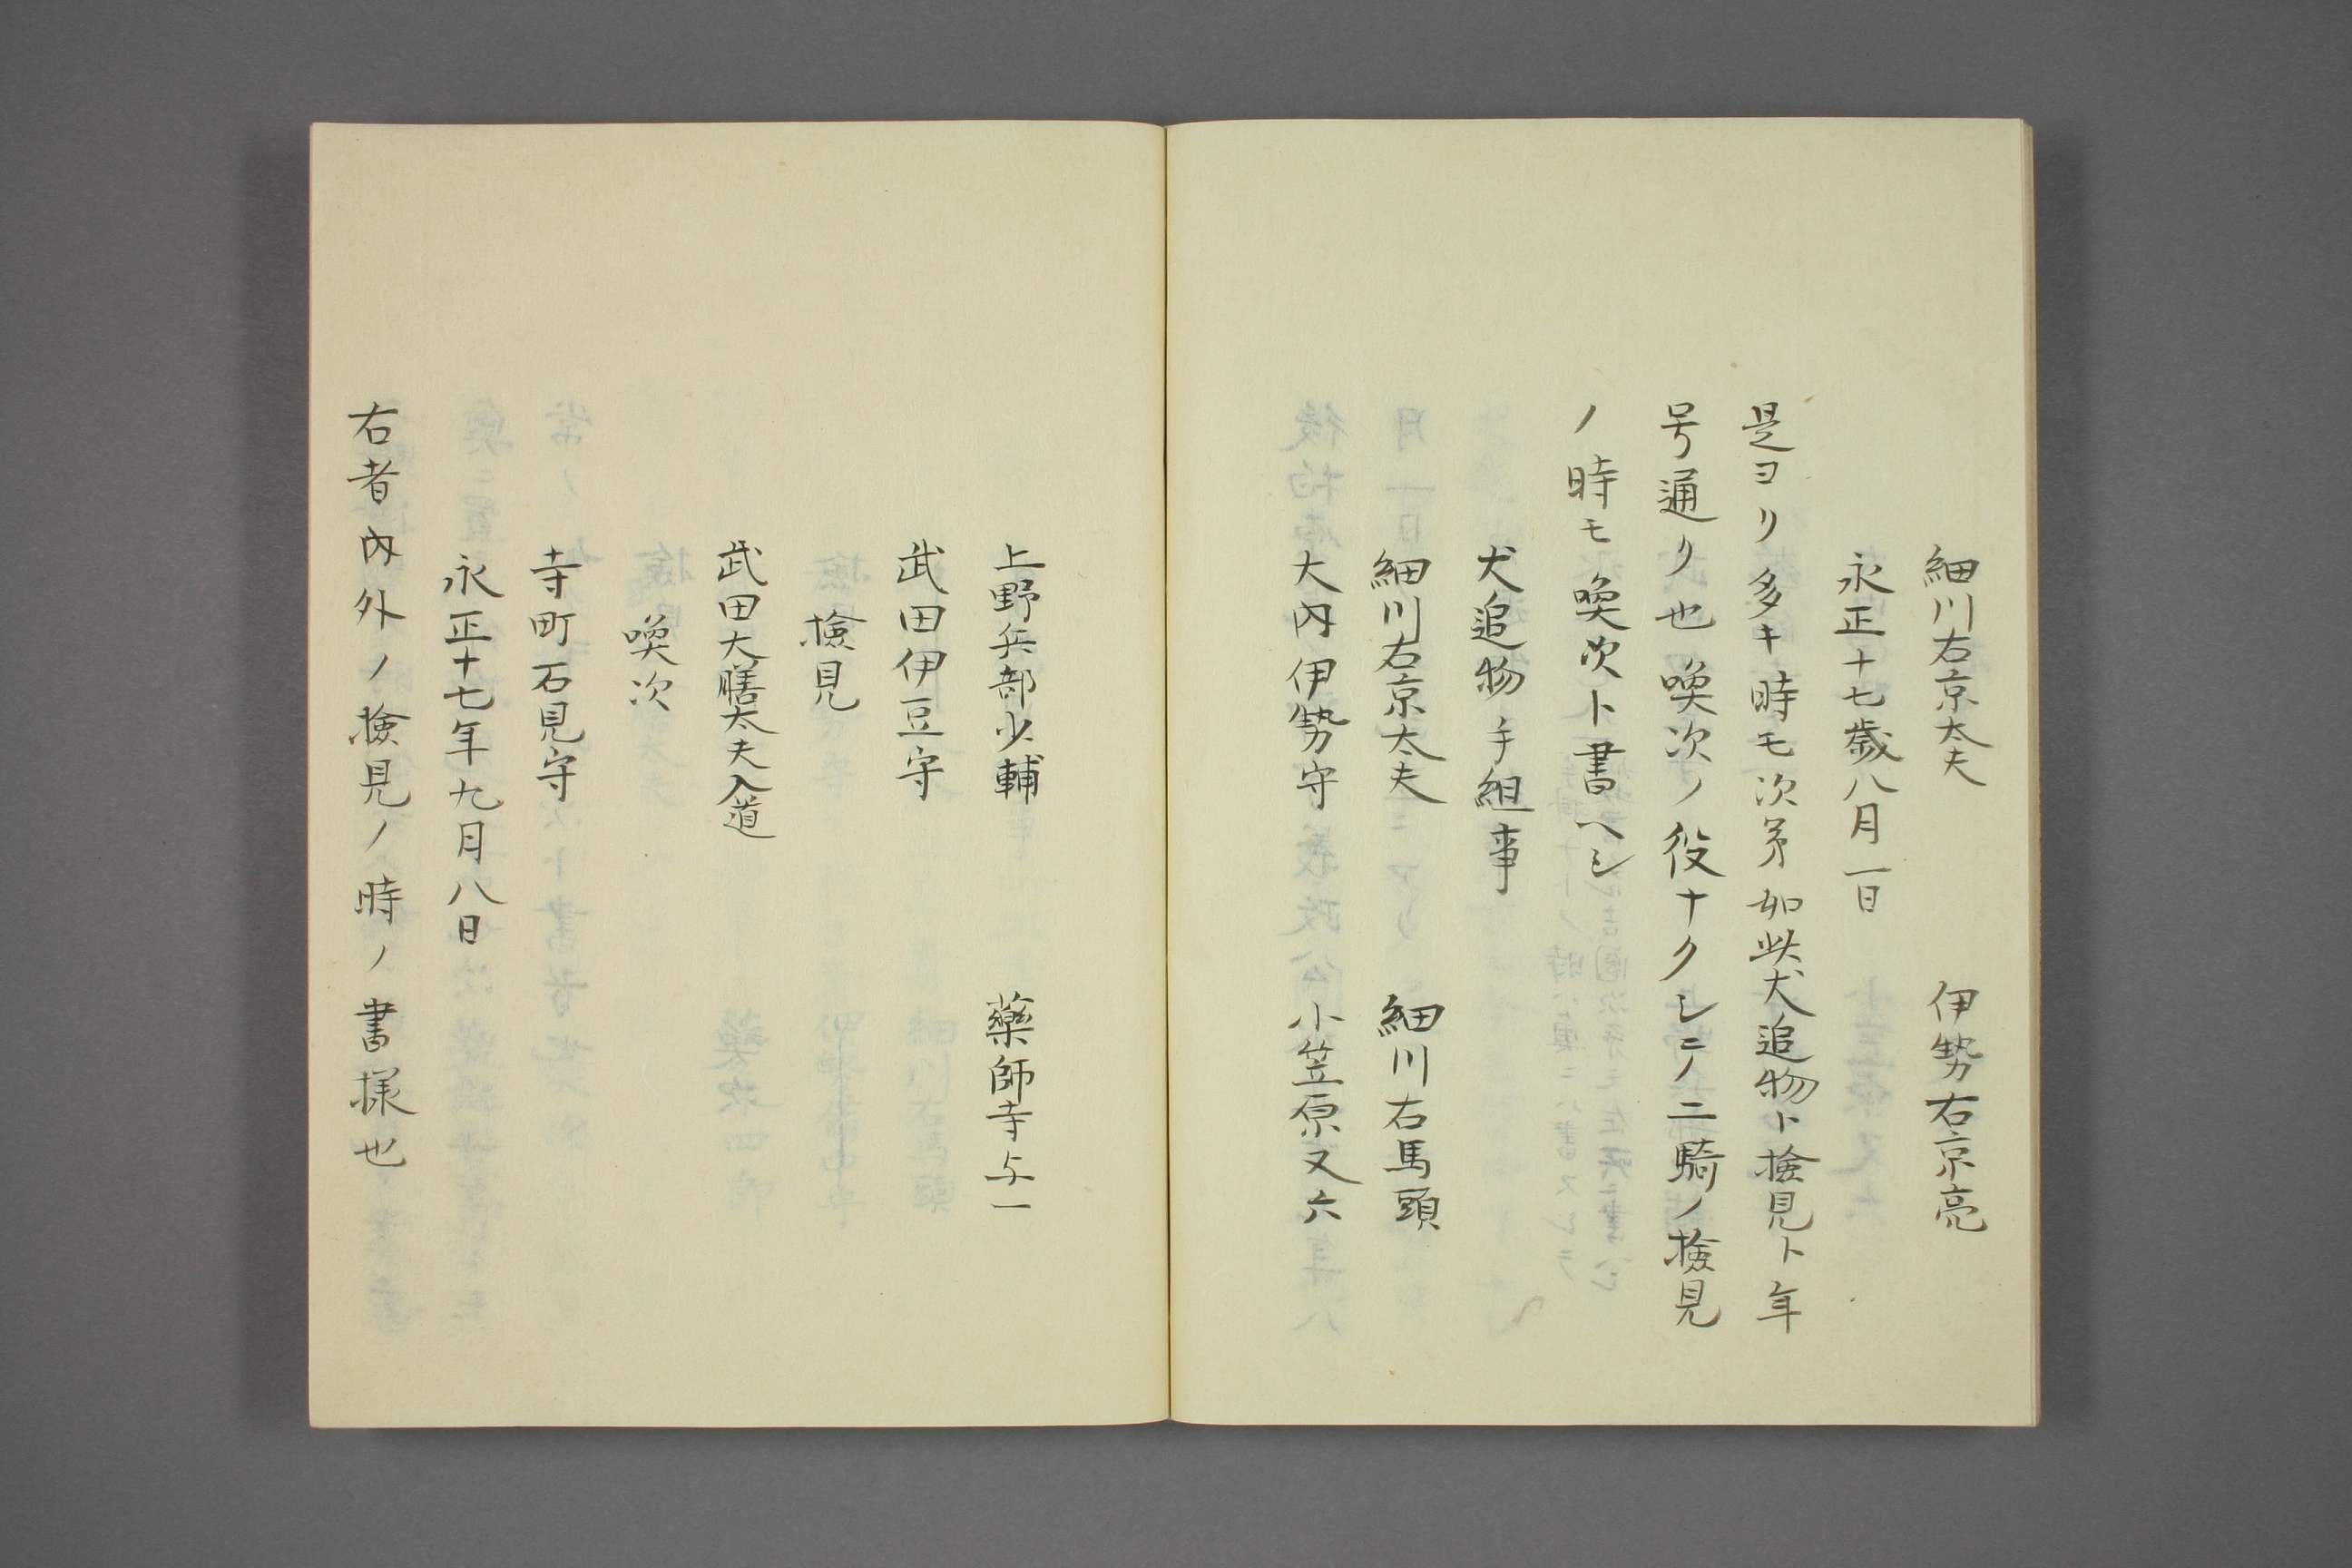 細川右京太夫　伊勢右京亮
永正十七歳八月一日
是ヨリ多キ時モ次第如此犬追物ト検見ト年
号通リ也喚次ノ役ナクシテ二騎ノ検見
ノ時モ喚次ト書ヘシ
犬追物手組事
細川右京太夫　細川右馬頭
大内伊勢守　小笠原又六
上野兵部少輔　薬師寺与一
武田伊豆守
検見
武田大膳太夫入道
喚次
寺町石見守
永正十七年九月八日
右者内外ノ検見ノ時ノ書様也